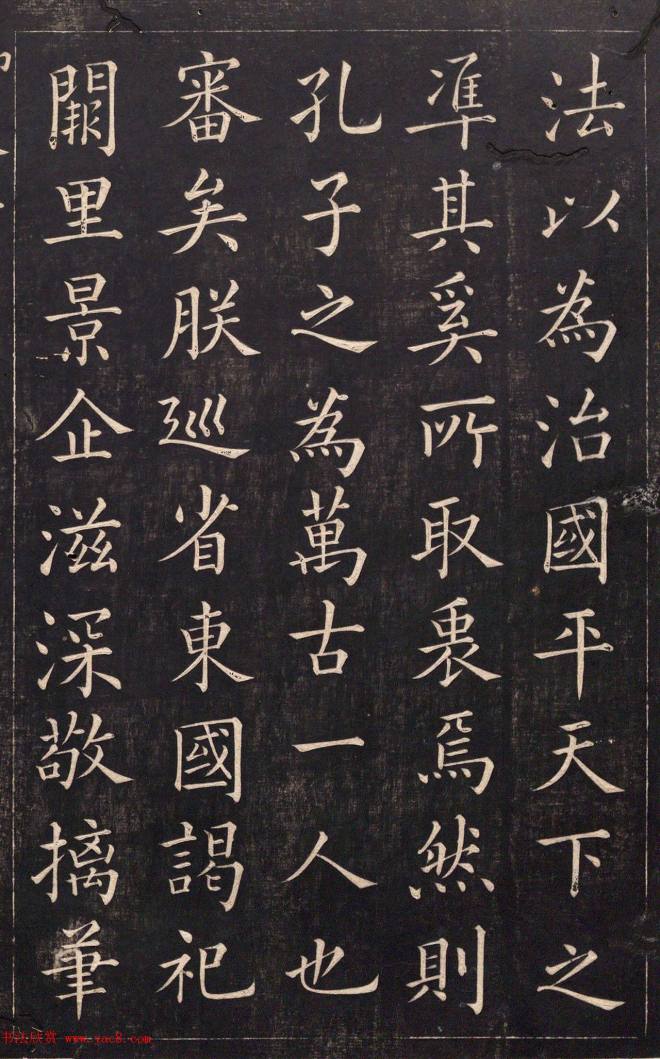 法以為治國平天下之
準其奚所取衷焉然則
孔子之為萬古一人也
審矣朕巡省東國謁祀
闕里景企滋深敬摛筆
书法欣赏 www.yac8.com